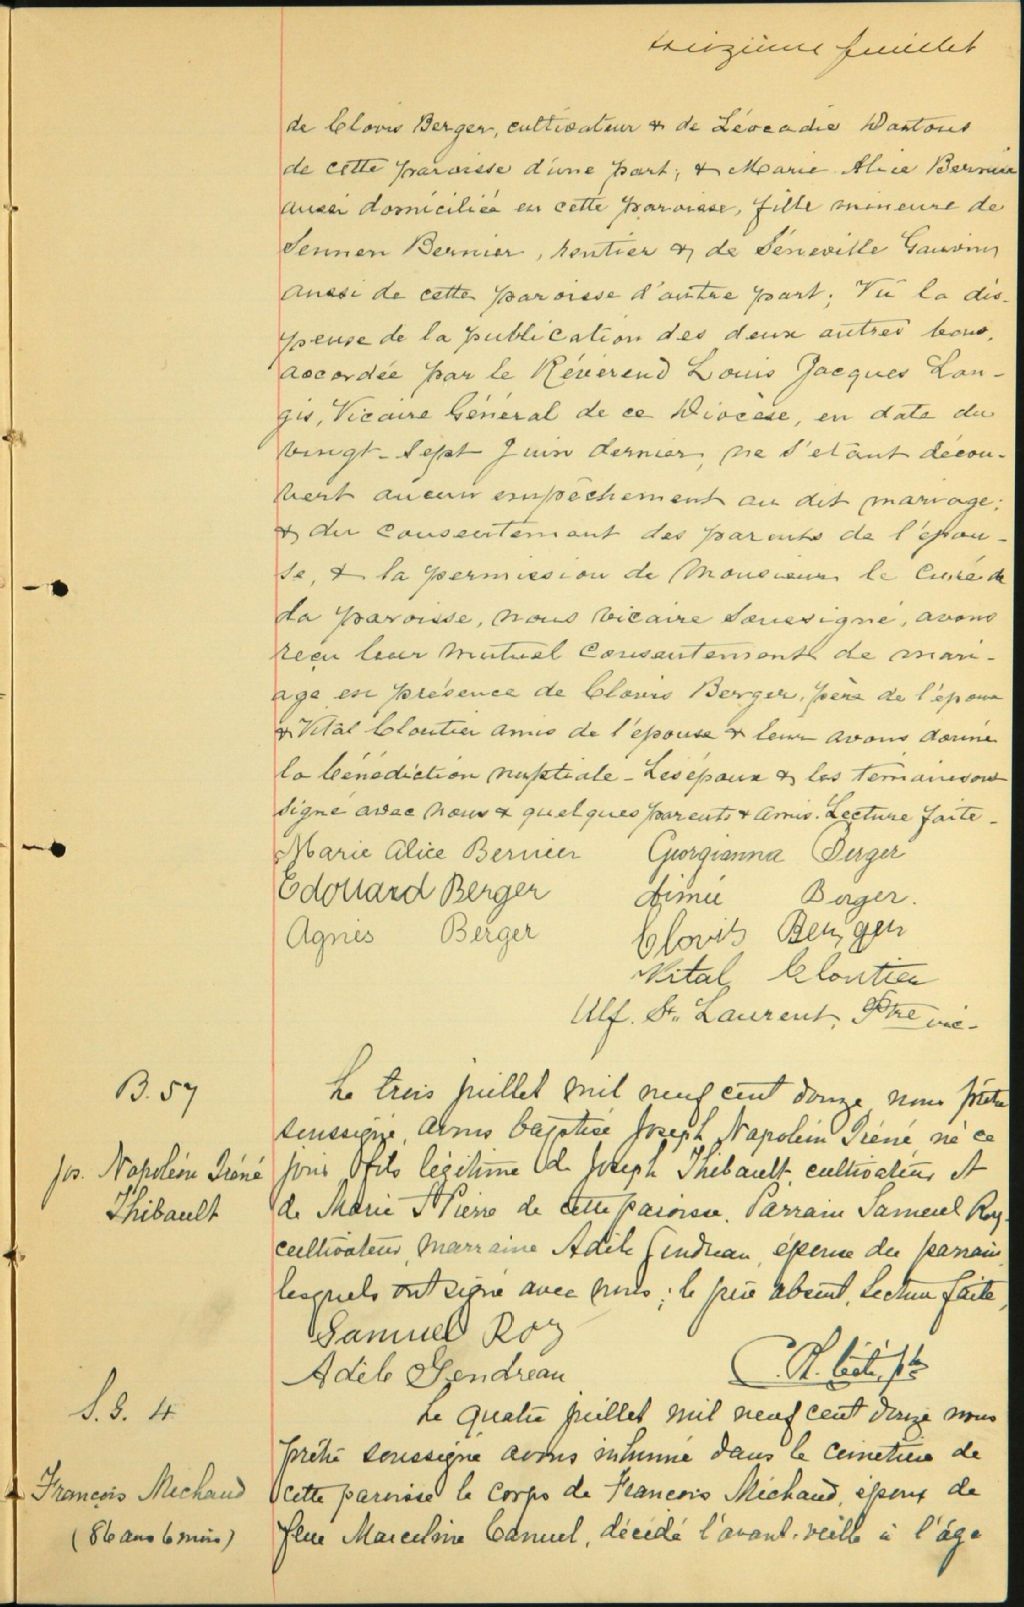 treizième feuillet
de Clovis Berger, cultivateur & de Léocadie Dantous
de cette paroisse d'une part; & Marie Alice Bernier
aussi domiciliée en cette paroisse, fille mineure de
Sennen Bernier, rentier & de Séneville Gauvin,
aussi de cette paroisse d'autre part; Vu la dis-
pense de la publication des deux autres bans,
accordée par le Révérend Louis Jacques Lan-
gis, Vicaire Général de ce Diocèse, en date du
vingt-sept Juin dernier, ne s'etant décou-
vert aucun empêchement au dit mariage;
& du consentement des parents de l'épou-
se, & la permission de Monsieur le Curé de
la paroisse, nous vicaire soussigné, avons
reçu leur mutuel consentement de mari-
age en présence de Clovis Berger, père de l'époux
& Vital Cloutier amis de l'épouse & leur avons donné
la bénédiction nuptiale - Les époux & les témoins ont
signé avec nous & quelques parents & amis. Lecture faite -
Marie Alice Bernier Georgianna Berger
Edouard Berger Aimée Berger.
Agnès Berger Clovis Berger
Vital Cloutier
Ulf. St. Laurent, Ptre vic-
B. 57
Jos. Napoléon Iréné
Thibault
Le trois juillet mil neuf cent douze, nous prêtre
soussigné, avons baptisé Joseph Napoléon Iréné né ce
jour fils légitime de Joseph Thibault cultivateur et
de Marie St Pierre de cette paroisse. Parrain Samuel Roy
cultivateur, marraine Adèle Gendreau, épouse du parrain,
lesquels ont signé avec nous; le père absent. Lecture faite,
Samuel Roy
Adèle Gendreau
S. 4
François Michaud
(86 ans 6 mois)
Le quatre juillet mil neuf cent douze nous
prêtre soussigné avons inhumé dans le cimetière de
cette paroisse le corps de François Michaud, époux de
feue Marceline Canuel, décédé l'avant-veille à l'âge